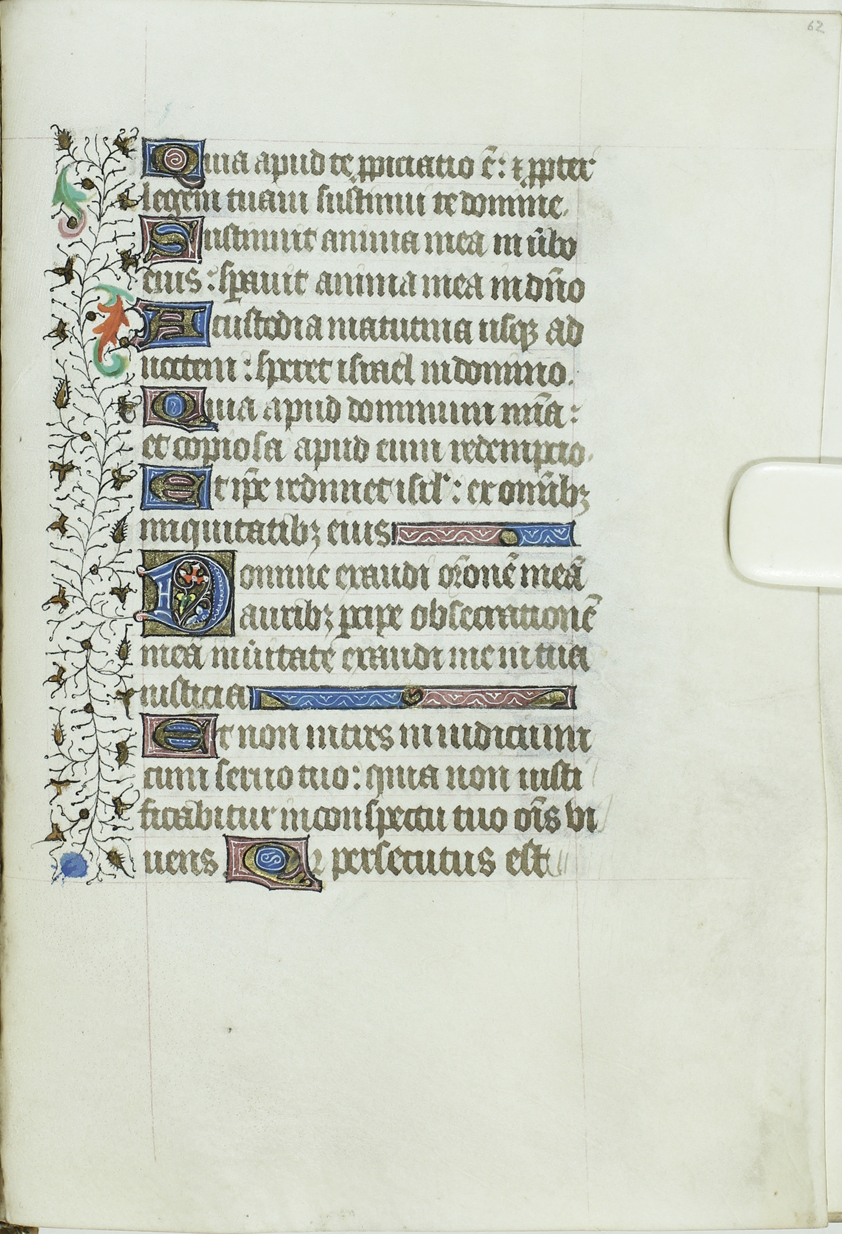 62
Quia apud te ꝓpiciatio ē: ⁊ ꝓpter
legem tuam sustinui te domine.
Sustinuit anima mea in ūbo
eius: sꝑauit anima mea in dn̄o
A custodia matutina usqꝫ ad
noctem: speret israel in domino.
Quia apud dominum mīa:
et copiosa apud eum redempcio.
Et ip̄e redimet isrl̄: ex om̄ibꝫ
iniquitatibꝫ eius
Domine exaudi or̄onē meā
auribꝫ ꝑcipe obsecrationē
meā in ūitate exaudi me in tua
iusticia
Et non intres in iudicium
cum seruo tuo: quia non iusti
ficabitur in conspectu tuo oīs vi
uens Q persecutus est